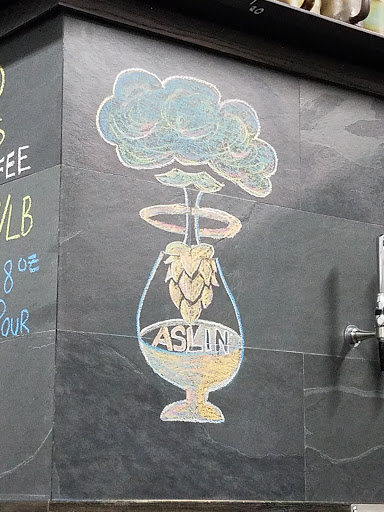 FEE
/LB
8 oz
Pour
ASLIN